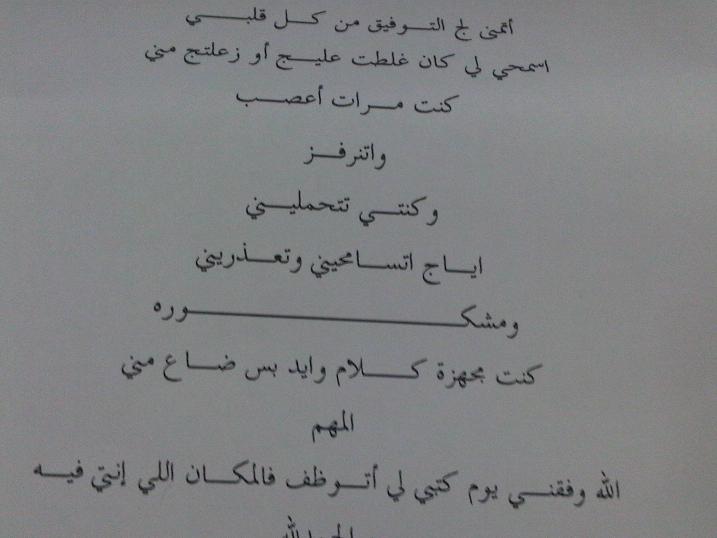 أتمنى لج التوفيق من كل قلبي
اسمحي لي كان غلطت عليج أو زعلتج مني
كنت مرات أعصب
واتنرفز
وكنتي تتحمليني
اياج اتسامحيني وتعذريني
ومشكوره
كنت مجهزة كلام وايد بس ضاع مني
المهم
الله وفقني يوم كتبي لي أتوظف فالمكان اللي إنتي فيه